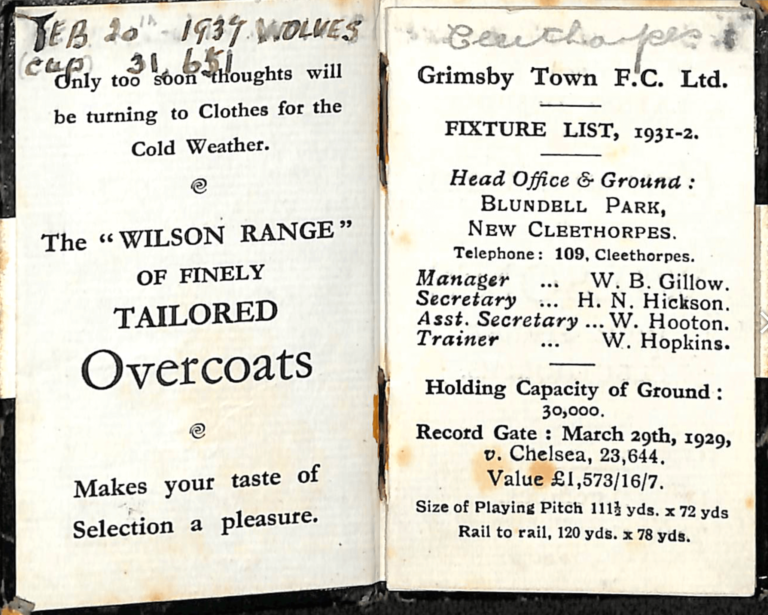 FEB 20th 1937 WOLVES
cup 31,651
Only too soon thoughts will
be turning to Clothes for the
Cold Weather.
The “WILSON RANGE”
OF FINELY
TAILORED
Overcoats
Makes your taste of
Selection a pleasure.
Cleethorpes
Grimsby Town F.C. Ltd.
FIXTURE LIST, 1931-2.
Head Office & Ground :
BLUNDELL PARK,
NEW CLEETHORPES.
Telephone: 109, Cleethorpes.
Manager ... W. B. Gillow.
Secretary ... H. N. Hickson.
Asst. Secretary ... W. Hooton.
Trainer ... W. Hopkins.
Holding Capacity of Ground :
30,000.
Record Gate : March 29th, 1929,
v. Chelsea, 23,644.
Value £1,573/16/7.
Size of Playing Pitch 111½ yds. x 72 yds
Rail to rail, 120 yds. x 78 yds.